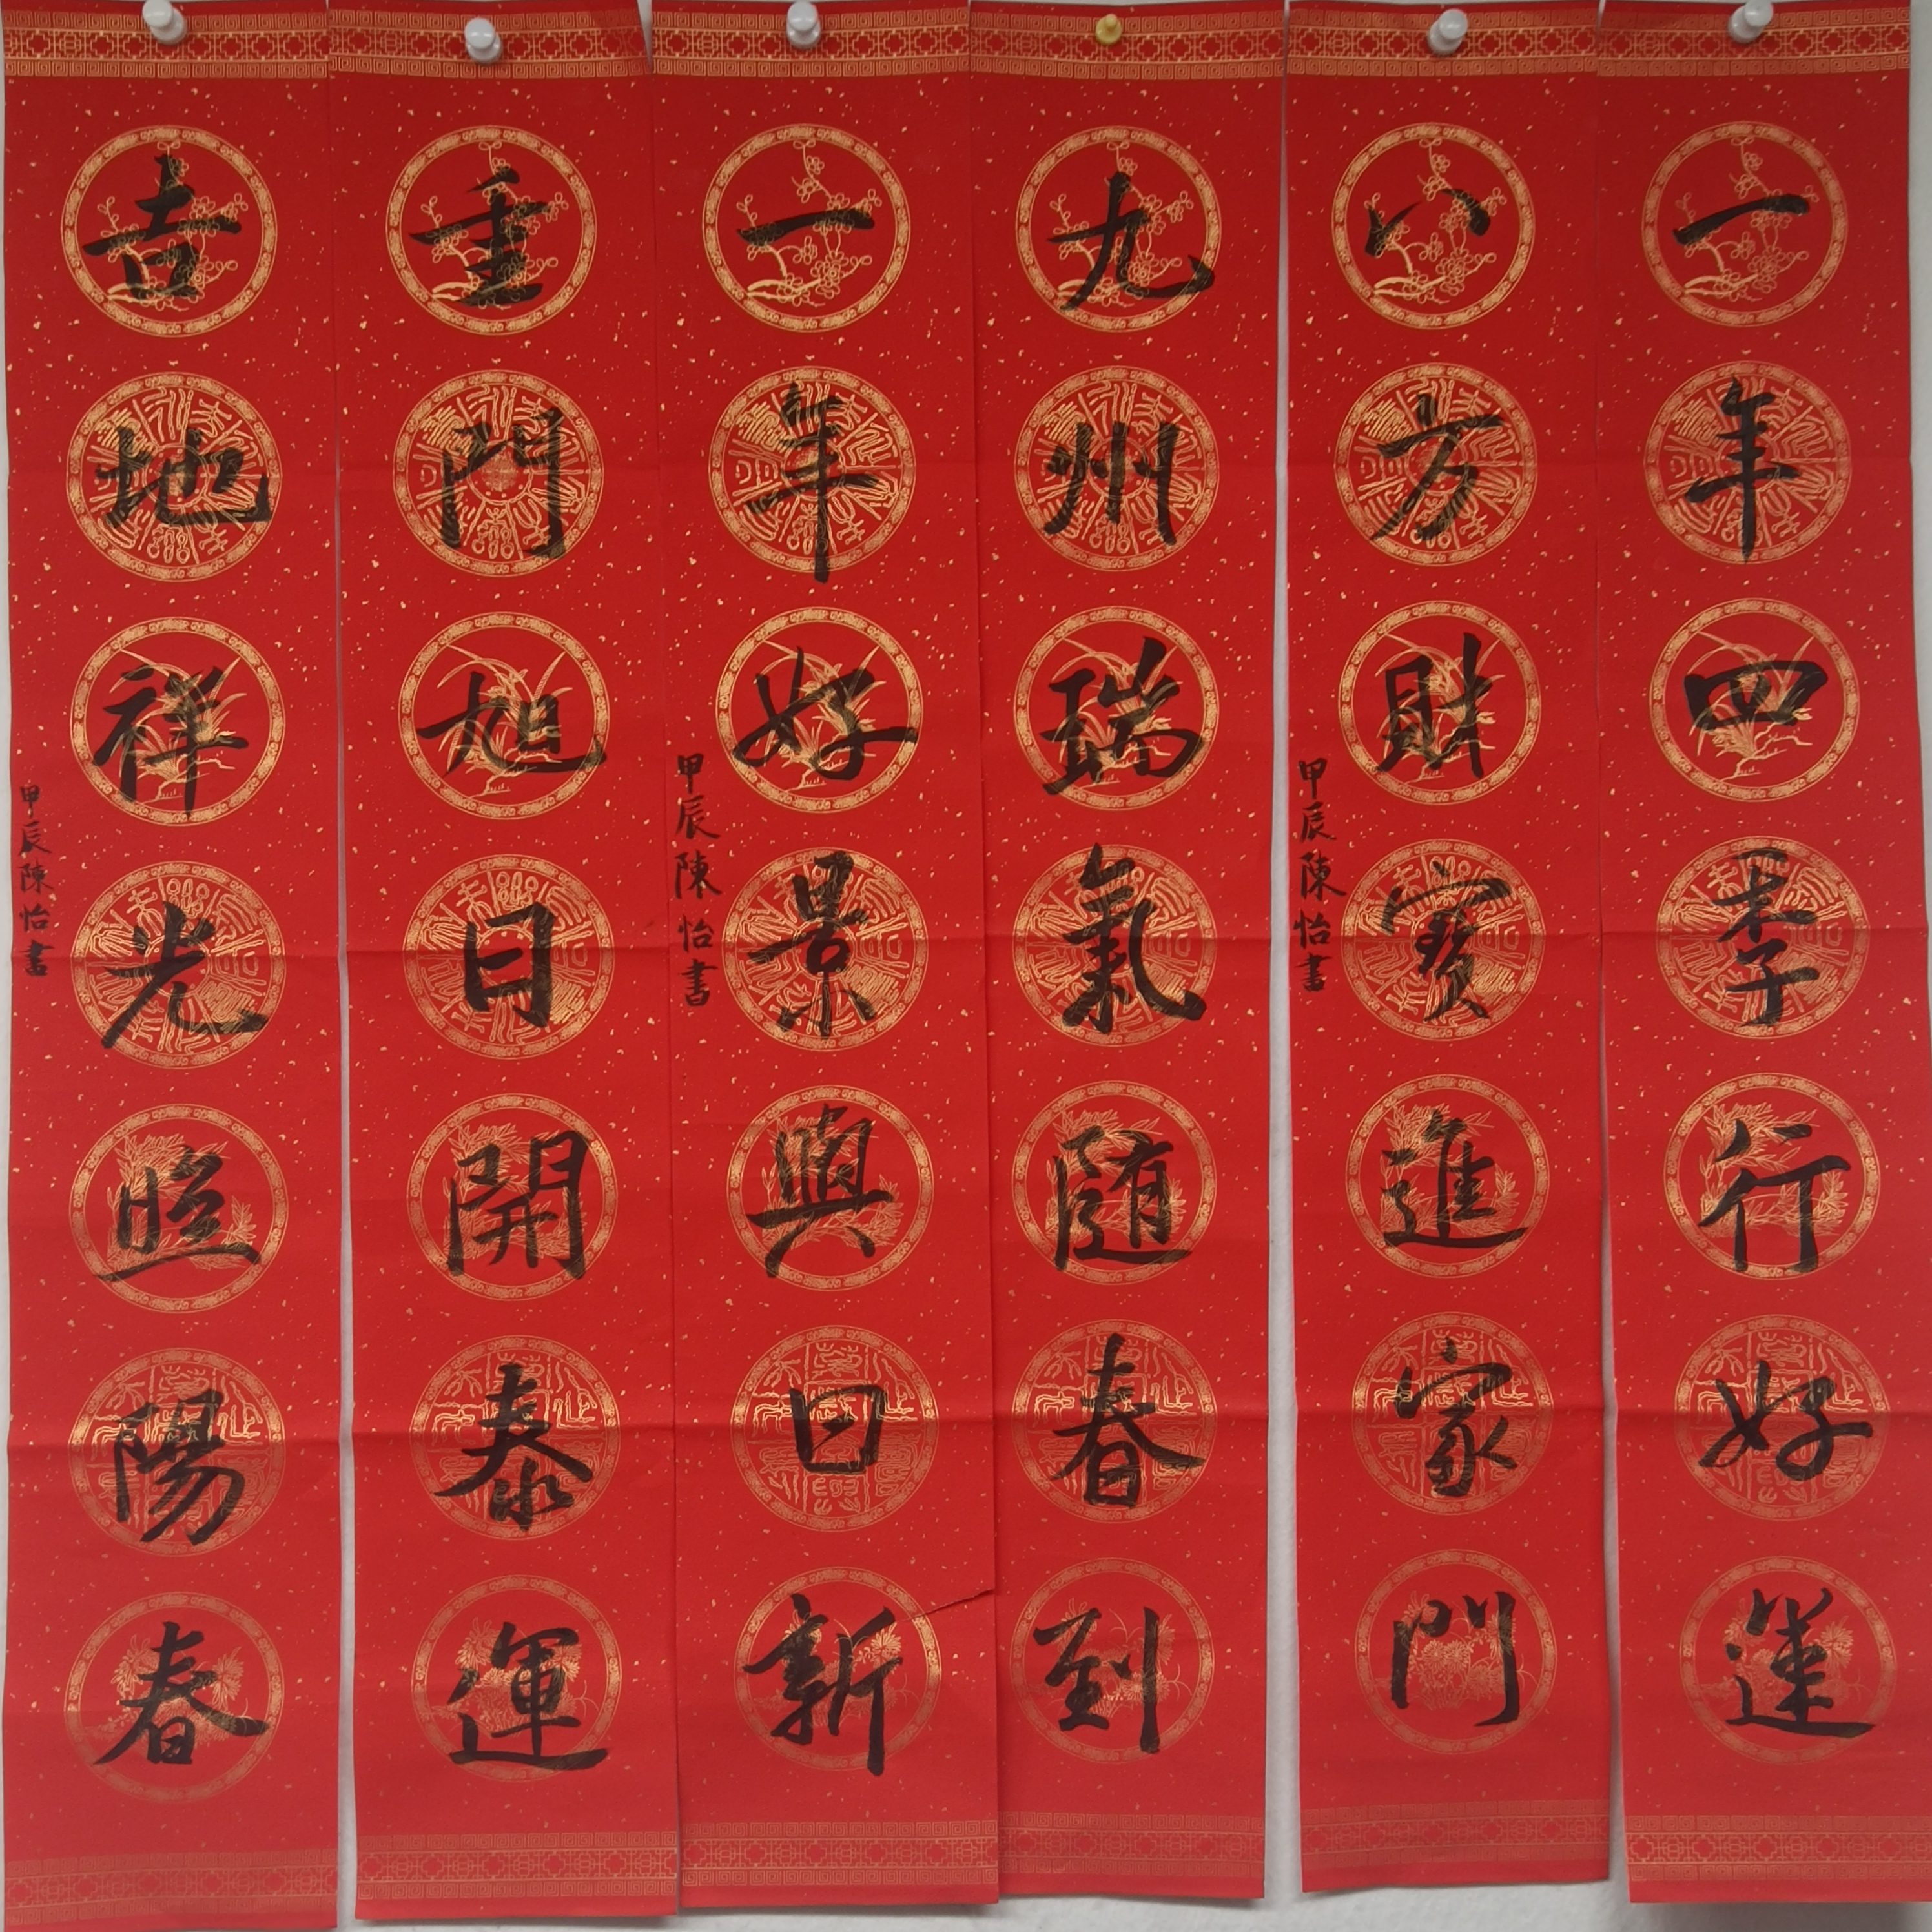 一年四季行好運
八方財寶進家門
甲辰陳怡書
九州瑞氣隨春到
一年好景與日新
甲辰陳怡書
重門旭日開泰運
吉地祥光照陽春
甲辰陳怡書